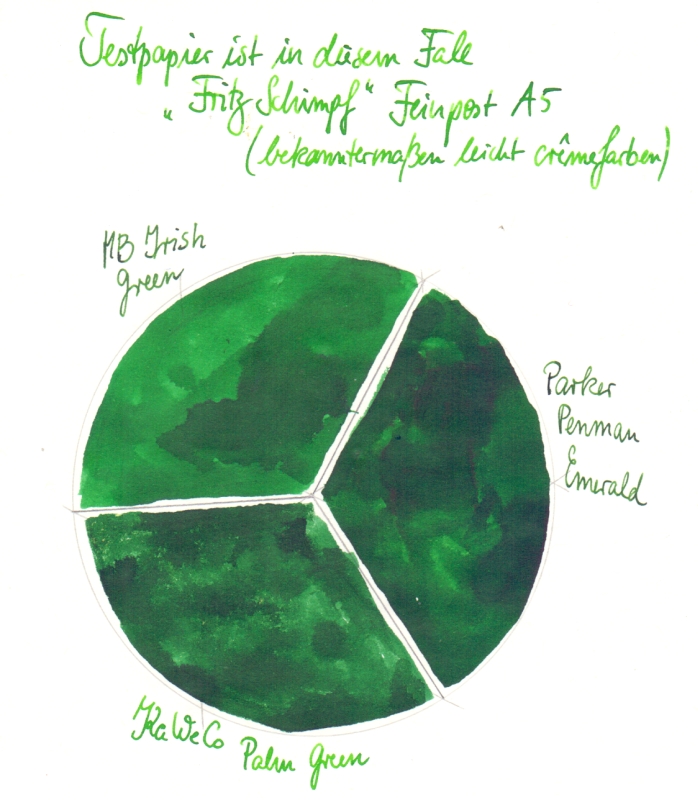 Testpapier ist in diesem Falle
„Fritz Schimpf“ Feinpost A5
(bekanntermaßen leicht crêmefarben)
MB Irish
Green
Parker
Penman
Emerald
KaWeCo Palm Green